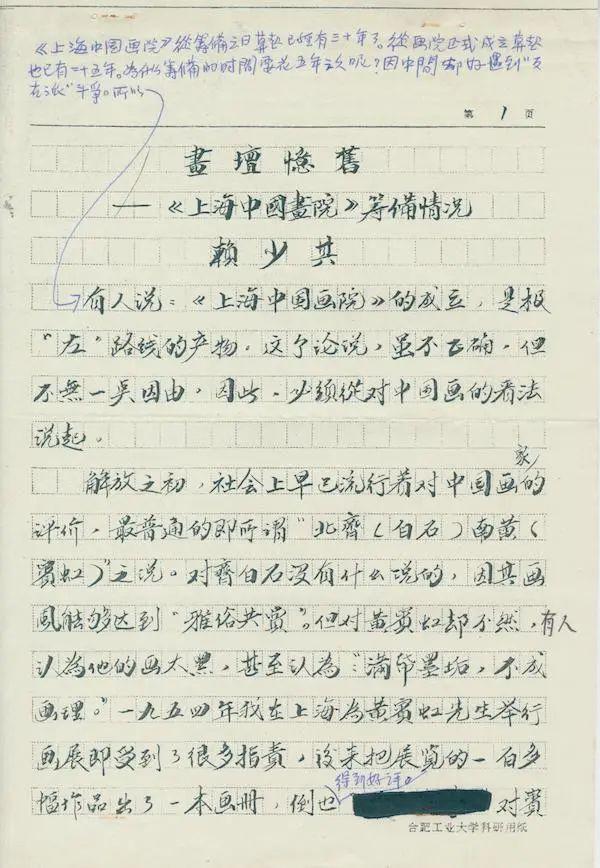 《上海中国画院》從筹備之日算起已經有三十年了。從画院正式成立算起
也已有二十五年。为什么筹備的时間要花五年之久呢？因中間却好遇到“反
右派”斗争。所以
第 1 页
畫壇憶舊
——《上海中國畫院》筹備情况
賴少其
有人说：《上海中国画院》的成立，是极
“左”路线的产物。这个论说，虽不正确，但
不無一点因由，因此，必须從对中国画的看法
说起。
家
解放之初，社会上早已流行着对中国画的
评价，最普通的即所谓“北齊（白石）南黄（
賓虹）”之说。对齊白石没有什么说的，因其画
風能够达到“雅俗共賞”。但对黄賓虹却不然，有人
认為他的画太黑，甚至认為“满纸墨垢，不成
画理。”一九五四年我在上海為黄賓虹先生举行
画展即受到了很多指責，後来把展覧的一百多
得到好评。
幅作品出了一本画冊，倒也 对賓
合肥工业大学科研用纸